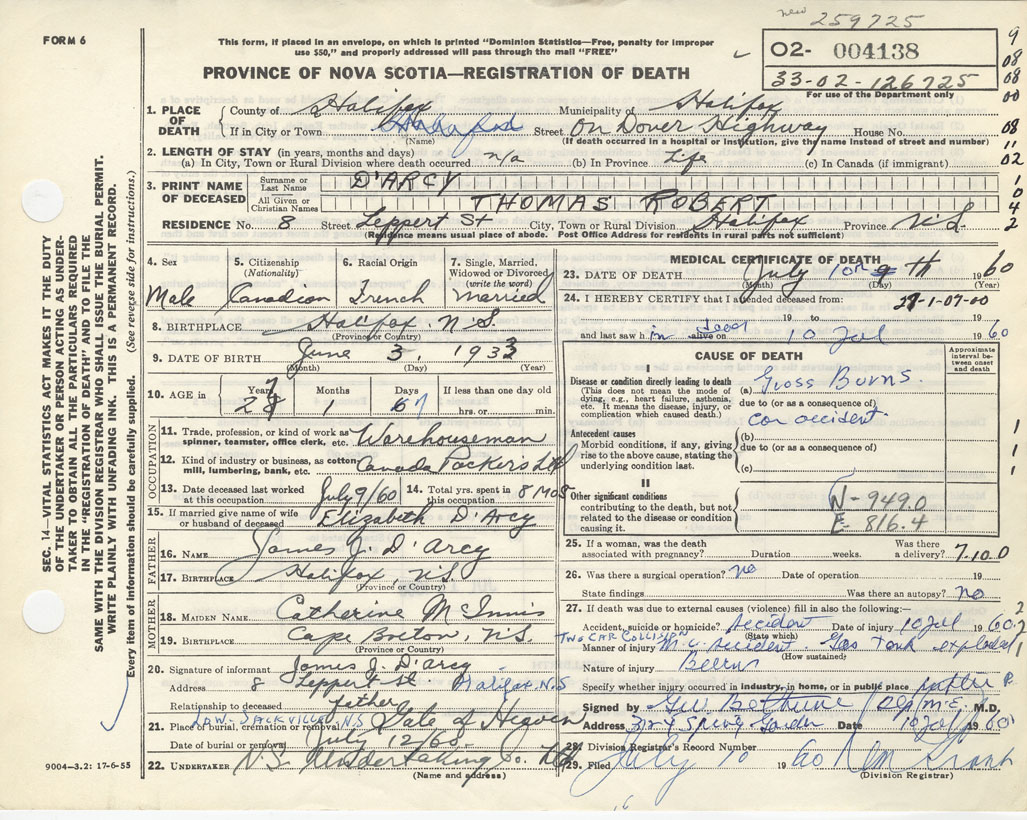 new 259725
FORM 6
This form, if placed in an envelope, on which is printed "Dominion Statistics—Free, penalty for improper
use $50," and properly addressed will pass through the mail "FREE"
O2- 004138
33-02-126725
For use of the Department only
PROVINCE OF NOVA SCOTIA—REGISTRATION OF DEATH
9
08
08
00
08
11
02
1
0
4
2
1. PLACE OF DEATH
County of Halifax Municipality of Halifax
If in City or Town Street On Dover Highway House No.
(Name) (If death occurred in a hospital or institution, give the name instead of street and number)
2. LENGTH OF STAY (in years, months and days)
(a) In City, Town or Rural Division where death occurred n/a (b) In Province Life (c) In Canada (if immigrant)
3. PRINT NAME OF DECEASED
Surname or Last Name D'ARCY
All Given or Christian Names THOMAS ROBERT
RESIDENCE No. 8 Street Leppert St City, Town or Rural Division Halifax Province N.S.
(Residence means usual place of abode. Post Office Address for residents in rural parts not sufficient)
SEC. 14—VITAL STATISTICS ACT MAKES IT THE DUTY
OF THE UNDERTAKER OR PERSON ACTING AS UNDER-
TAKER TO OBTAIN ALL THE PARTICULARS REQUIRED
IN THE "REGISTRATION OF DEATH" AND TO FILE THE
SAME WITH THE DIVISION REGISTRAR WHO SHALL ISSUE THE BURIAL PERMIT.
WRITE PLAINLY WITH UNFADING INK. THIS IS A PERMANENT RECORD.
Every item of information should be carefully supplied. (See reverse side for instructions.)
4. Sex Male
5. Citizenship (Nationality) Canadian
6. Racial Origin French
7. Single, Married, Widowed or Divorced (write the word) Married
8. BIRTHPLACE Halifax N.S.
(Province or Country)
9. DATE OF BIRTH June 3, 1933
(Month) (Day) (Year)
10. AGE in Years 27 Months 1 Days 7 If less than one day old
hrs. or min.
OCCUPATION
11. Trade, profession, or kind of work as spinner, teamster, office clerk, etc. Warehouseman
12. Kind of industry or business, as cotton mill, lumbering, bank, etc. Canada Packers Ltd
13. Date deceased last worked at this occupation July 9/60 14. Total yrs. spent in this occupation 8 Mos
15. If married give name of wife or husband of deceased Elizabeth D'Arcy
FATHER
16. NAME James J. D'Arcy
17. BIRTHPLACE Halifax, N.S.
(Province or Country)
MOTHER
18. MAIDEN NAME Catherine McInnis
19. BIRTHPLACE Cape Breton, N.S.
(Province or Country)
20. Signature of informant James J. D'Arcy
Address 8 Leppert St. Halifax N.S
Relationship to deceased father
LOW. SACKVILLE N.S
21. Place of burial, cremation or removal Gate of Heaven
Date of burial or removal July 12/60.
22. UNDERTAKER N.S. Undertaking Co. Ltd
(Name and address)
9004—3.2: 17-6-55
MEDICAL CERTIFICATE OF DEATH
23. DATE OF DEATH July 10 th 1960
(Month) (Day) (Year)
24. I HEREBY CERTIFY that I attended deceased from: 27-1-07-00
19 to 19
and last saw h im dead alive on 10 Jul 1960
CAUSE OF DEATH
Approximate interval between onset and death
I
Disease or condition directly leading to death
(This does not mean the mode of dying, e.g., heart failure, asthenia, etc. It means the disease, injury, or complication which caused death.)
(a) Gross Burns.
due to (or as consequence of)
car accident
Antecedent causes
Morbid conditions, if any, giving rise to the above cause, stating the underlying condition last.
(b)
due to (or as consequence of)
(c)
1
1
1
II
Other significant conditions
contributing to the death, but not related to the disease or condition causing it.
N-949.0
E-816.4
25. If a woman, was the death associated with pregnancy? Duration weeks. Was there a delivery? 7.10.0
26. Was there a surgical operation? no Date of operation 19
State findings Was there an autopsy? no
27. If death was due to external causes (violence) fill in also the following:—
Accident, suicide or homicide? Accident Date of injury 10 Jul 1960.
(State which)
TWO CAR COLLISION
Manner of injury M.V. accident. Gas tank exploded
(How sustained)
Nature of injury Burns
Specify whether injury occurred in industry, in home, or in public place
Signed by M.D,
Address Spring Garden Date 10 Jul 1960
28. Division Registrar's Record Number
29. Filed July 10 1960
(Division Registrar)